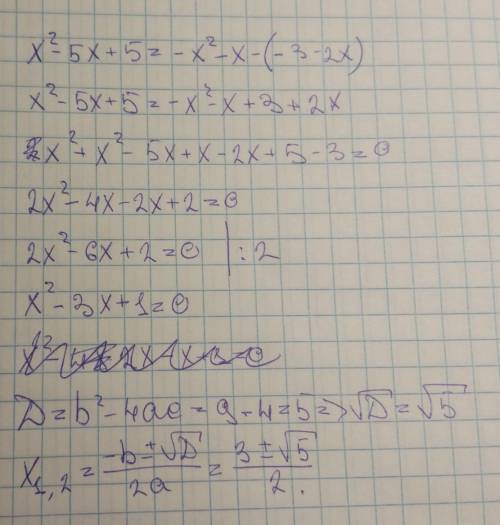 x² - 5x + 5 = -x² - x - (-3 - 2x)
x² - 5x + 5 = -x² - x + 3 + 2x
x² + x² - 5x + x - 2x + 5 - 3 = 0
2x² - 4x - 2x + 2 = 0
2x² - 6x + 2 = 0 | : 2
x² - 3x + 1 = 0
D = b² - 4ac = 9 - 4 = 5 => √D = √5
x₁,₂ = (-b ± √D)/(2a) = (3 ± √5)/2.